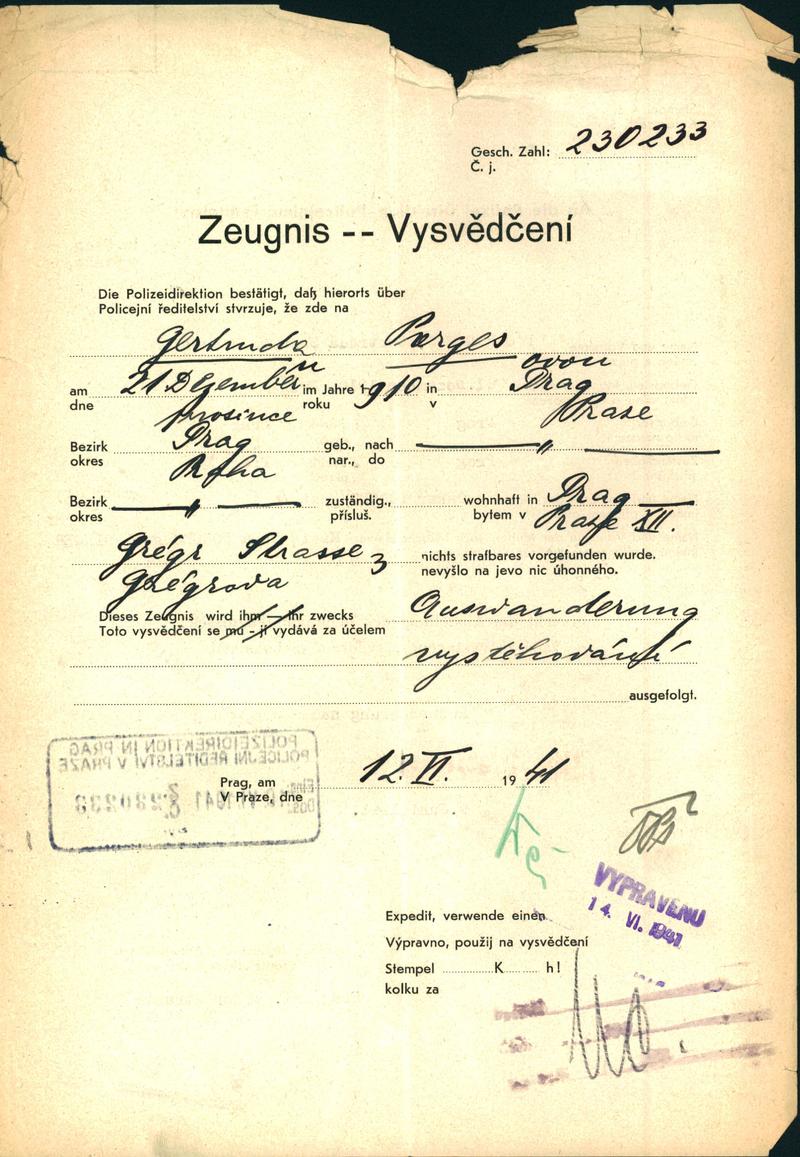 Gesch. Zahl: 230233
Č. j.
Zeugnis -- Vysvědčení
Die Polizeidirektion bestätigt, daß hierorts über
Policejní ředitelství stvrzuje, že zde na
Gertruda Porges
ovou
am 21 Dezember im Jahre 1910 in Prag
dne prosince roku v Praze
Bezirk Prag geb., nach — " —
okres Praha nar., do
Bezirk — " — zuständig., wohnhaft in Prag —
okres přísluš. bytem v Praze XII.
Grégr Strasse 3 nichts strafbares vorgefunden wurde.
Grégrova nevyšlo na jevo nic úhonného.
Dieses Zeugnis wird ihm — ihr zwecks Auswanderung
Toto vysvědčení se mu - jí vydává za účelem vystěhování
ausgefolgt.
POLIZEIDIREKTION IN PRAG
POLICEJNÍ ŘEDITELSTVÍ V PRAZE
Prag, am 12. VI. 1941
V Praze, dne
230233
VYPRAVENO
14. VI. 1941
Expedit, verwende einen
Výpravno, použij na vysvědčení
Stempel K h!
kolku za